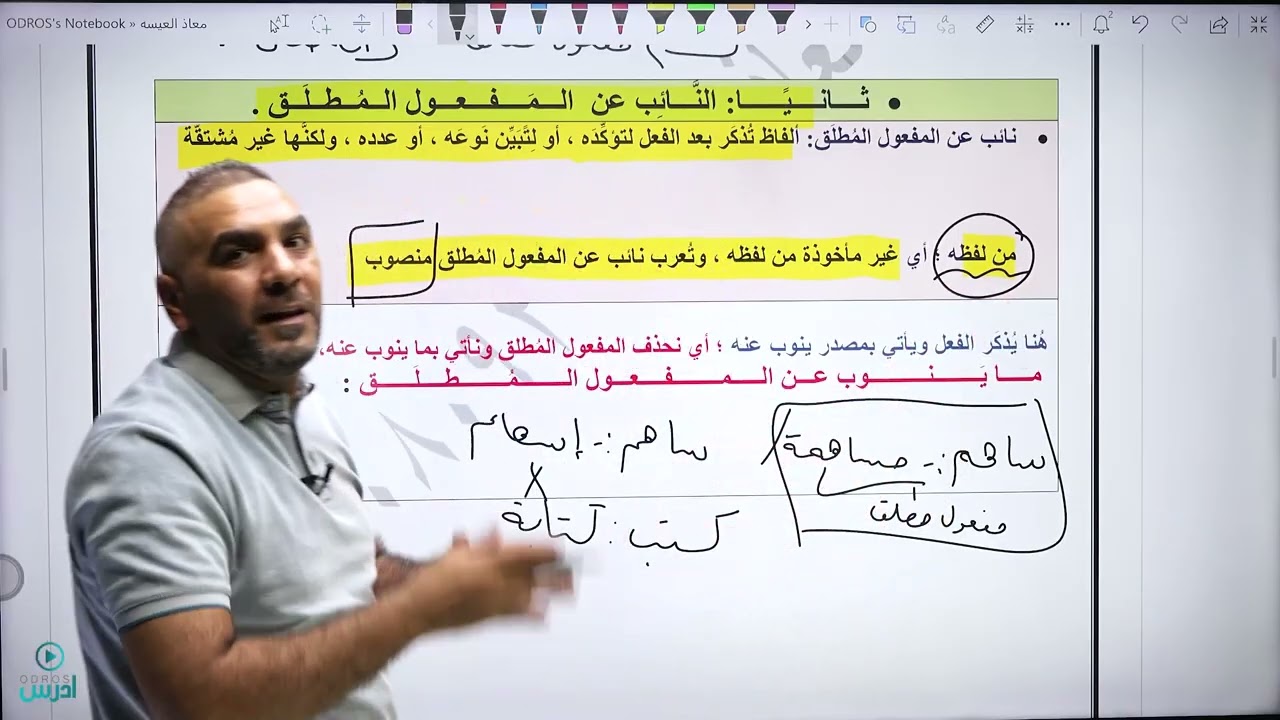 ODROS's Notebook » معاذ العيسه
• ثانيًا: النَّائِب عن المَفعول المُطلَق .
• نائب عن المفعول المُطلَق: ألفاظ تُذكَر بعد الفعل لتوَكِّده ، أو لِتَبَيِّن نَوعَه ، أو عدده ، ولكنَّها غير مُشتقّة
من لفظه ؛ أي غير مأخوذة من لفظه ، وتُعرب نائب عن المفعول المُطلق منصوب
هُنا يُذكَر الفعل ويأتي بمصدر ينوب عنه ؛ أي نحذف المفعول المُطلق ونأتي بما ينوب عنه،
ما يَنوب عن المفعول المُطلَق :
ساهم :- مساهمة
ساهم :- إسهام
مفعول مطلق
كتب : كتابة
ODROS
ادرس